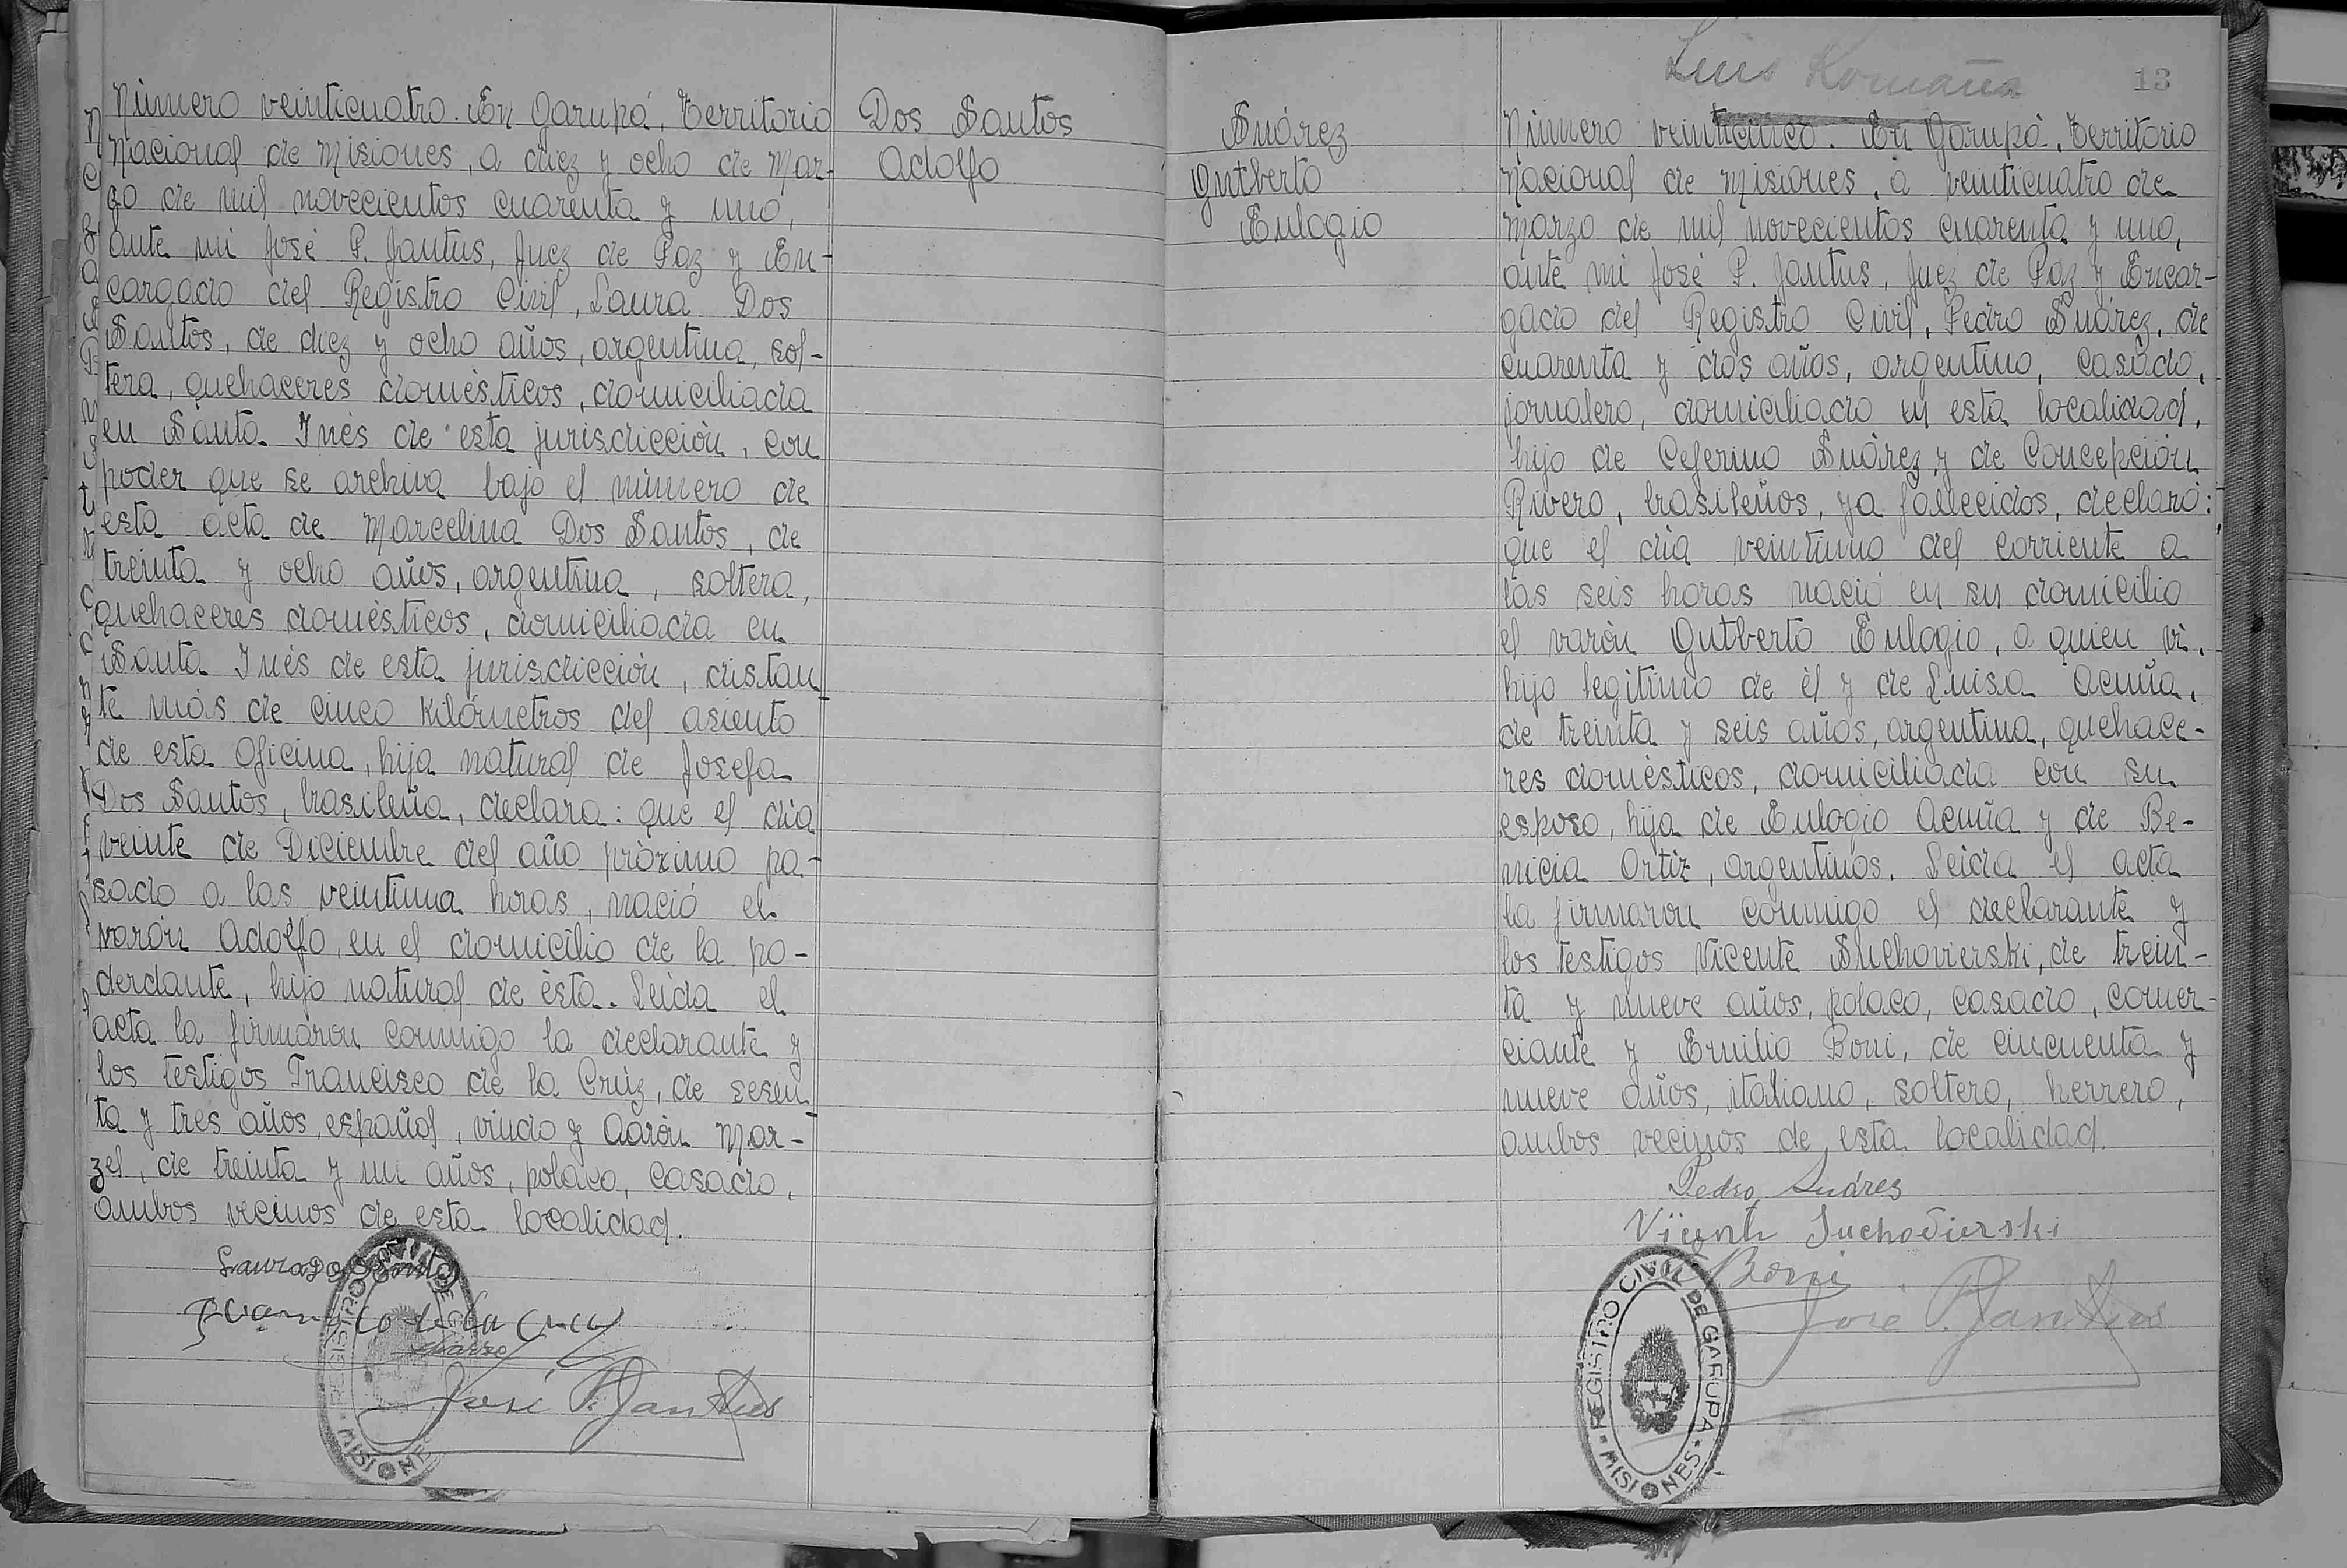 Número veinticuatro. En Garupá, Territorio
Nacional de Misiones, a diez y ocho de Mar-
zo de mil novecientos cuarenta y uno,
ante mi José P. Jantus, Juez de Paz y En-
cargado del Registro Civil, Laura Dos
Santos, de diez y ocho años, argentina, sol-
tera, quehaceres domésticos, domiciliada
en Santa Inés de esta jurisdicción, con
poder que se archiva bajo el número de
esta acta de Marcelina Dos Santos, de
treinta y ocho años, argentina, soltera,
quehaceres domésticos, domiciliada en
Santa Inés de esta jurisdicción, distan-
te más de cinco kilómetros del asiento
de esta Oficina, hija natural de Josefa
Dos Santos, brasileña, declara: que el día
veinte de Diciembre del año próximo pa-
sado a las veintiuna horas, nació el
varón Adolfo, en el domicilio de la po-
derdante, hijo natural de ésta. Leída el
acta la firmaron conmigo la declarante y
los testigos Francisco de la Cruz, de sesen-
ta y tres años, español, viudo y Aarón Mar-
zel, de treinta y un años, polaco, casado,
ambos vecinos de esta localidad.
Laura Dos Santos
Francisco de la Cruz
José P. Jantus
REGISTRO CIVIL DE
MISIONES
Dos Santos
Adolfo
Luis Romaña
13
Suárez
Gutberto
Eulogio
Número veinticinco. En Garupá, Territorio
Nacional de Misiones, a veinticuatro de
Marzo de mil novecientos cuarenta y uno,
ante mi José P. Jantus, Juez de Paz y Encar-
gado del Registro Civil, Pedro Suárez, de
cuarenta y dos años, argentino, casado,
jornalero, domiciliado en esta localidad,
hijo de Ceferino Suárez y de Concepción
Rivero, brasileños, ya fallecidos, declaró:
que el día veintiuno del corriente a
las seis horas nació en su domicilio
el varón Gutberto Eulogio, a quien vi,
hijo legítimo de él y de Luisa Acuña,
de treinta y seis años, argentina, quehace-
res domésticos, domiciliada con su
esposo, hija de Eulogio Acuña y de Be-
nicia Ortiz, argentinos. Leída el acta
la firmaron conmigo el declarante y
los testigos Vicente Suchovierski, de trein-
ta y nueve años, polaco, casado, comer-
ciante y Emilio Boni, de cincuenta y
nueve años, italiano, soltero, herrero,
ambos vecinos de esta localidad.
Pedro Suárez
Vicente Suchovierski
E Boni
José P. Jantus
REGISTRO CIVIL DE GARUPA
MISIONES